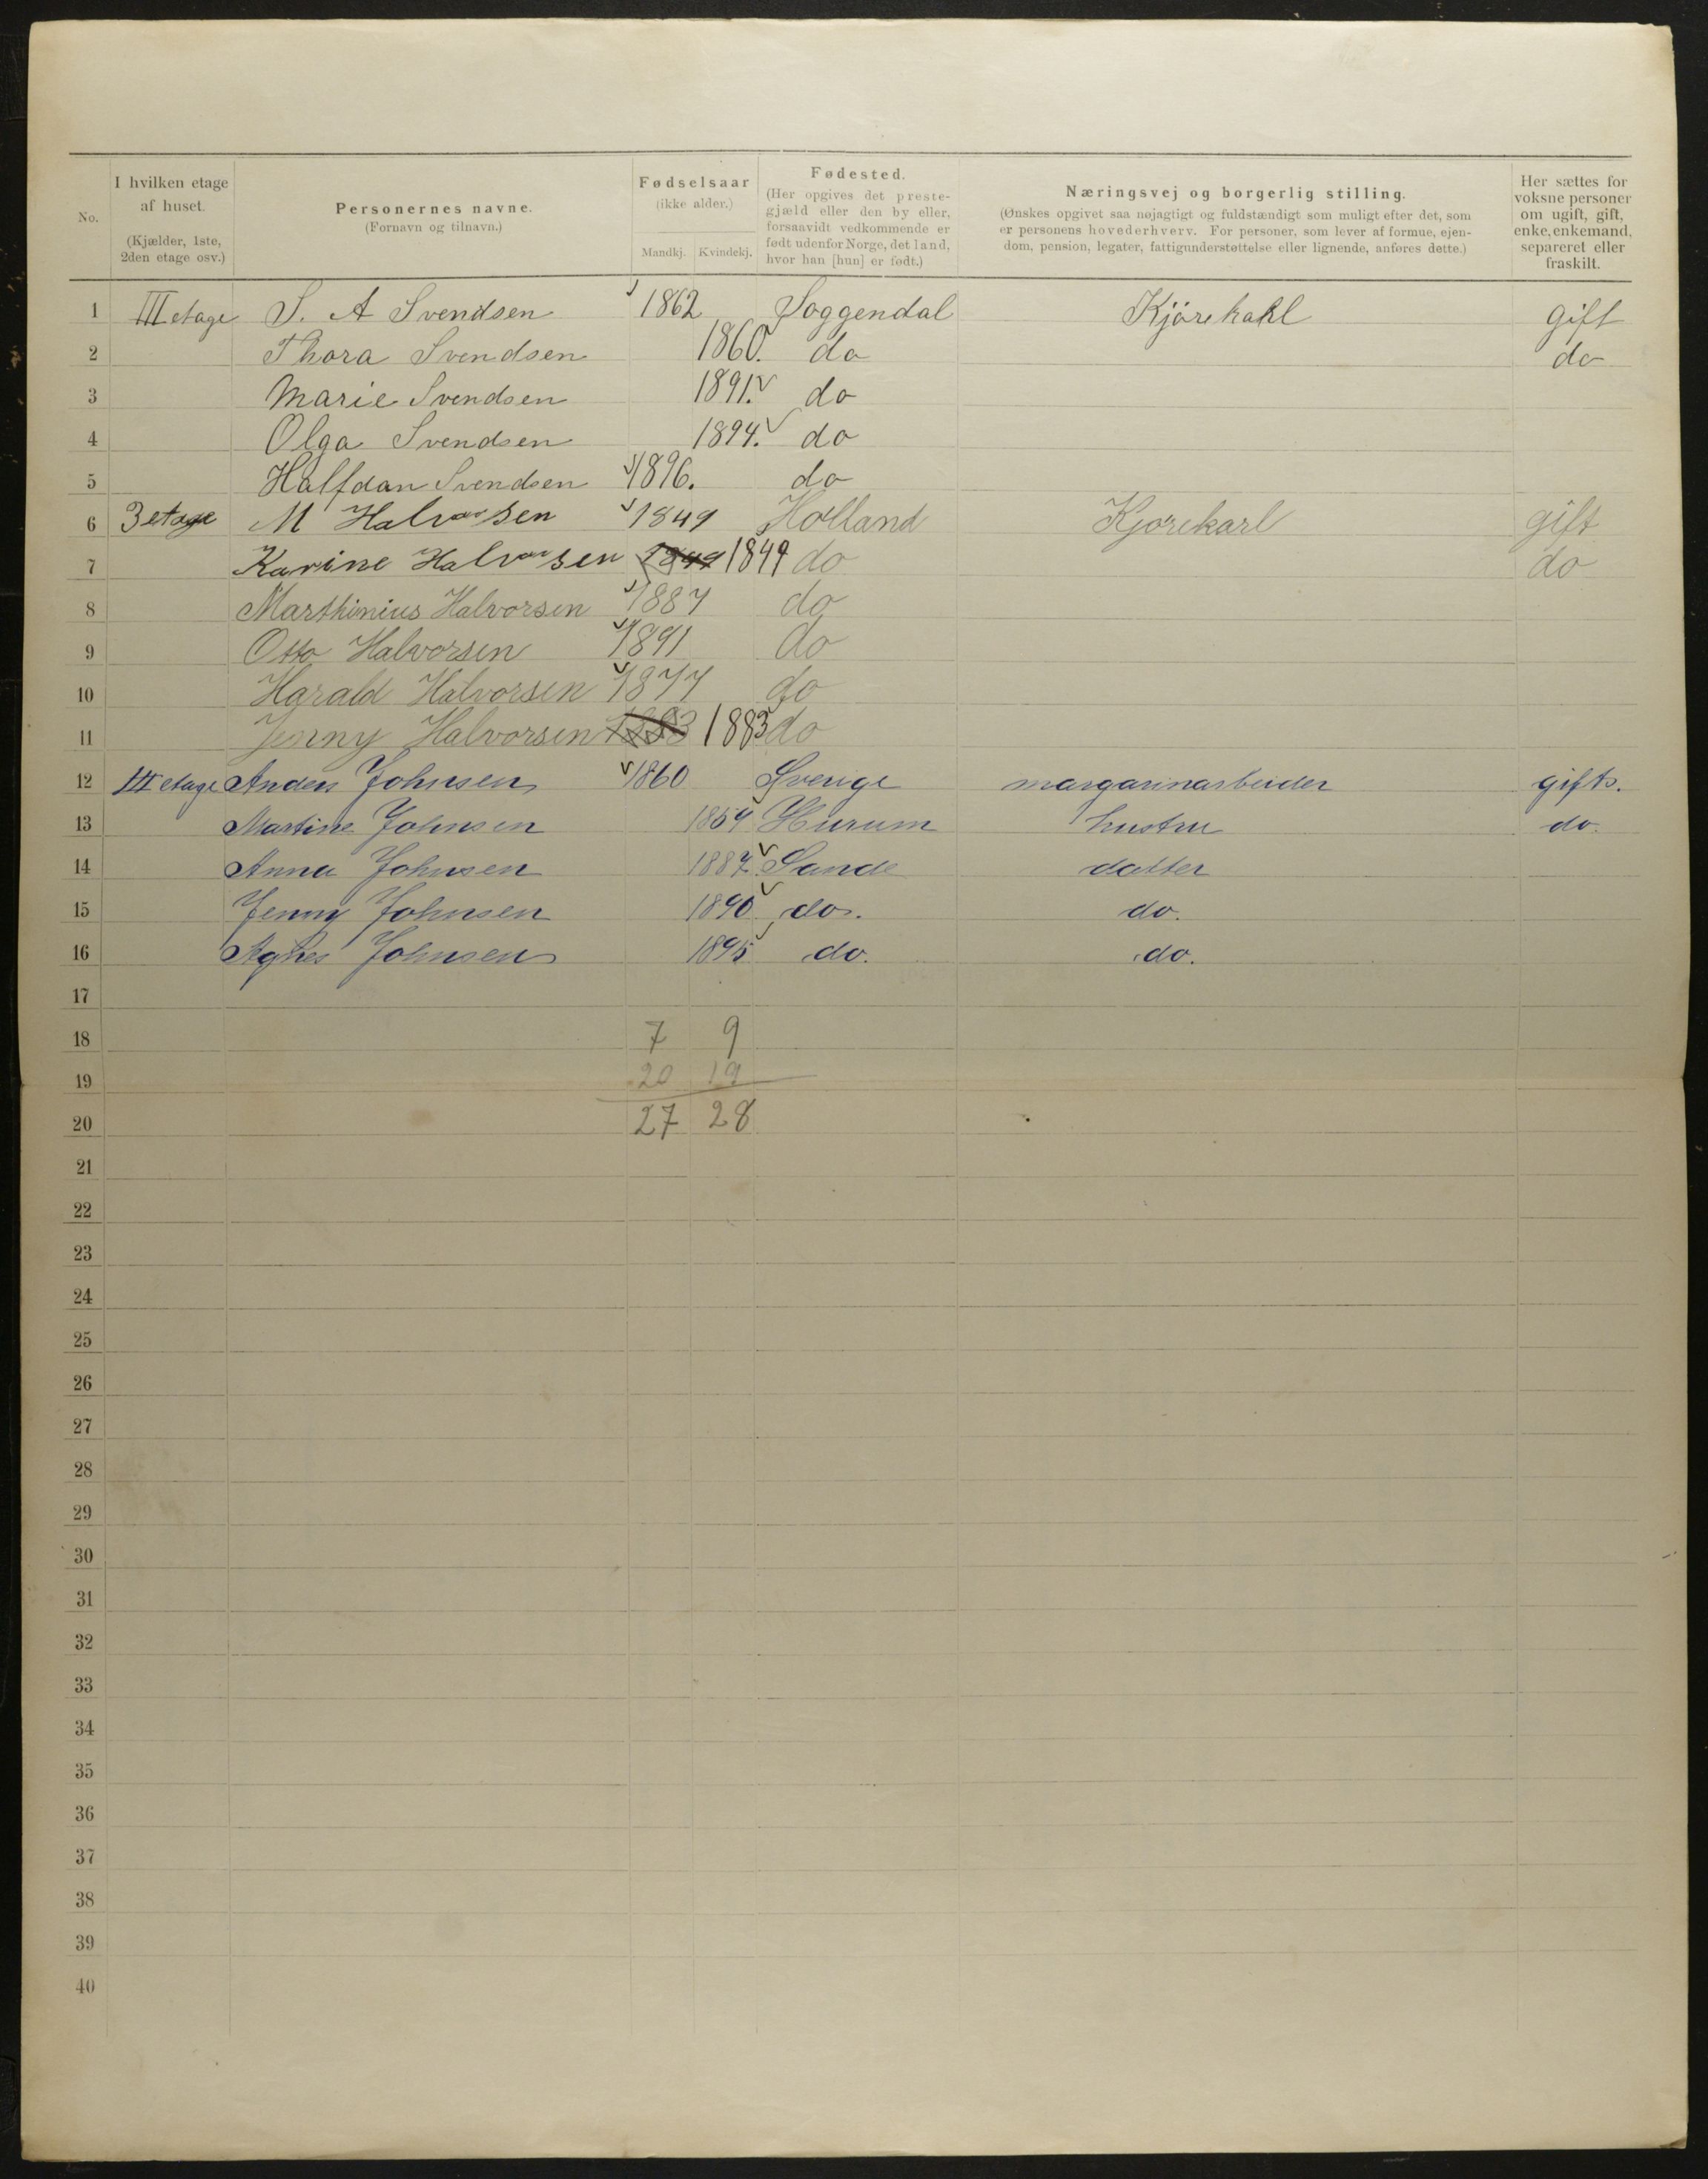 No.
I hvilken etage
af huset.
(Kjælder, 1ste,
2den etage osv.)
Personernes navne.
(Fornavn og tilnavn.)
Fødselsaar
(ikke alder.)
Mandkj. Kvindekj.
Fødested.
(Her opgives det preste-
gjæld eller den by eller,
forsaavidt vedkommende er
født udenfor Norge, det land,
hvor han [hun] er født.)
Næringsvej og borgerlig stilling.
(Ønskes opgivet saa nøjagtigt og fuldstændigt som muligt efter det, som
er personens hovederhverv. For personer, som lever af formue, ejen-
dom, pension, legater, fattigunderstøttelse eller lignende, anføres dette.)
Her sættes for
voksne personer
om ugift, gift,
enke, enkemand,
separeret eller
fraskilt.
1 III etage S. A Svendsen 1862 Soggendal Kjörekarl gift
2 Thora Svendsen 1860. do do
3 Marie Svendsen 1891. do
4 Olga Svendsen 1894. do
5 Halfdan Svendsen 1896. do
6 3 etage M Halvorsen 1849 Holland Kjørekarl gift
7 Karine Halvorsen 1849 1849 do do
8 Marthinius Halvorsen 1887 do
9 Otto Halvorsen 1891 do
10 Harald Halvorsen 1877 do
11 Jenny Halvorsen 1883 1883 do
12 III etage Anders Johnsen 1860 Sverige margarinarbeider gift.
13 Martine Johnsen 1859 Hurum hustru do.
14 Anna Johnsen 1887. Sande datter
15 Jenny Johnsen 1890 do. do.
16 Agnes Johnsen 1895 do. do.
17
18 7 9
19 20 19
20 27 28
21
22
23
24
25
26
27
28
29
30
31
32
33
34
35
36
37
38
39
40